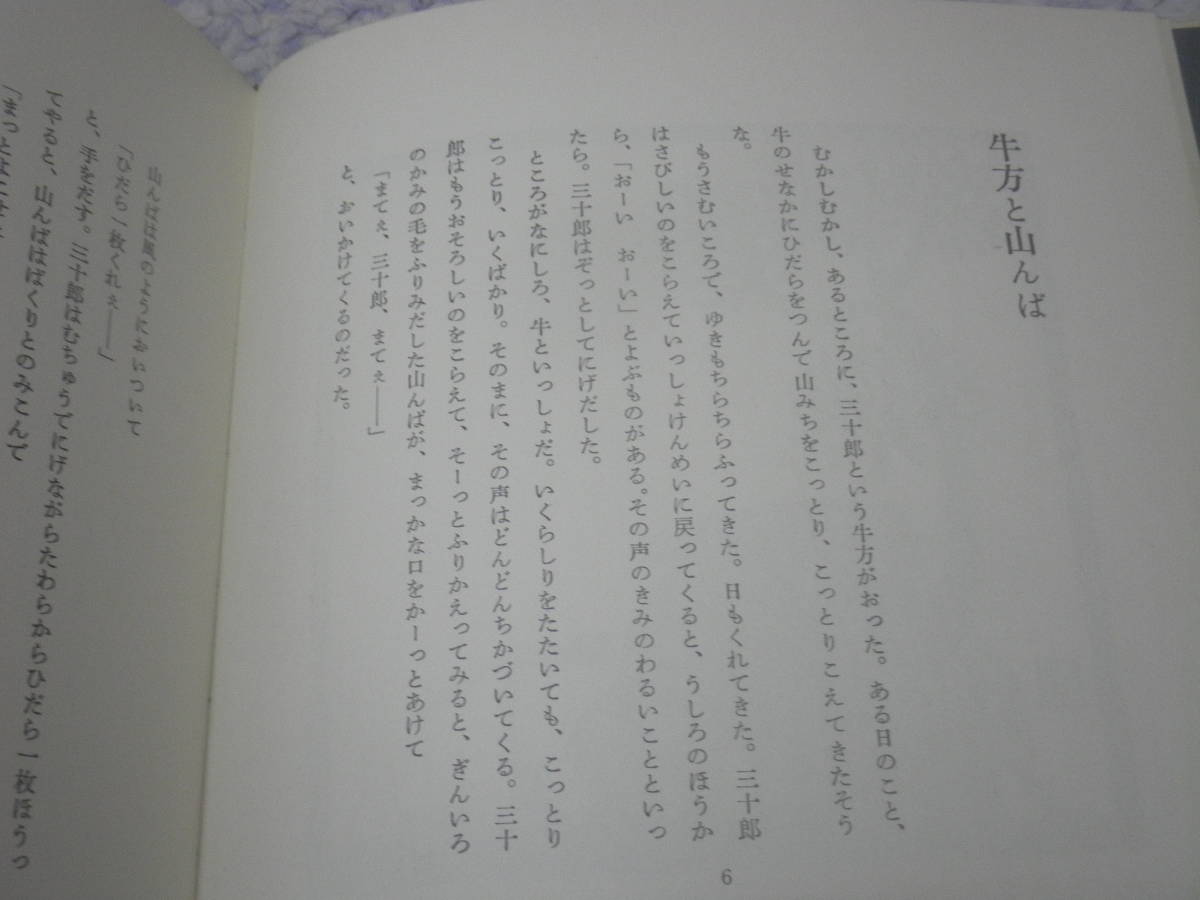 牛方と山んば
むかしむかし、あるところに、三十郎という牛方がおった。ある日のこと、
牛のせなかにひだらをつんで山みちをこっとり、こっとりこえてきたそう
な。
もうさむいころで、ゆきもちらちらふってきた。日もくれてきた。三十郎
はさびしいのをこらえていっしょけんめいに戻ってくると、うしろのほうか
ら、「おーい　おーい」とよぶものがある。その声のきみのわるいことといっ
たら。三十郎はぞっとしてにげだした。
ところがなにしろ、牛といっしょだ。いくらしりをたたいても、こっとり
こっとり、いくばかり。そのまに、その声はどんどんちかづいてくる。三十
郎はもうおそろしいのをこらえて、そーっとふりかえってみると、ぎんいろ
のかみの毛をふりみだした山んばが、まっかな口をかーっとあけて
「まてぇ、三十郎、まてぇ――」
と、おいかけてくるのだった。
6
山んばは風のようにおいついて
「ひだら一枚くれぇ――」
と、手をだす。三十郎はむちゅうでにげながらたわらからひだら一枚ほうっ
てやると、山んばはぱくりとのみこんで